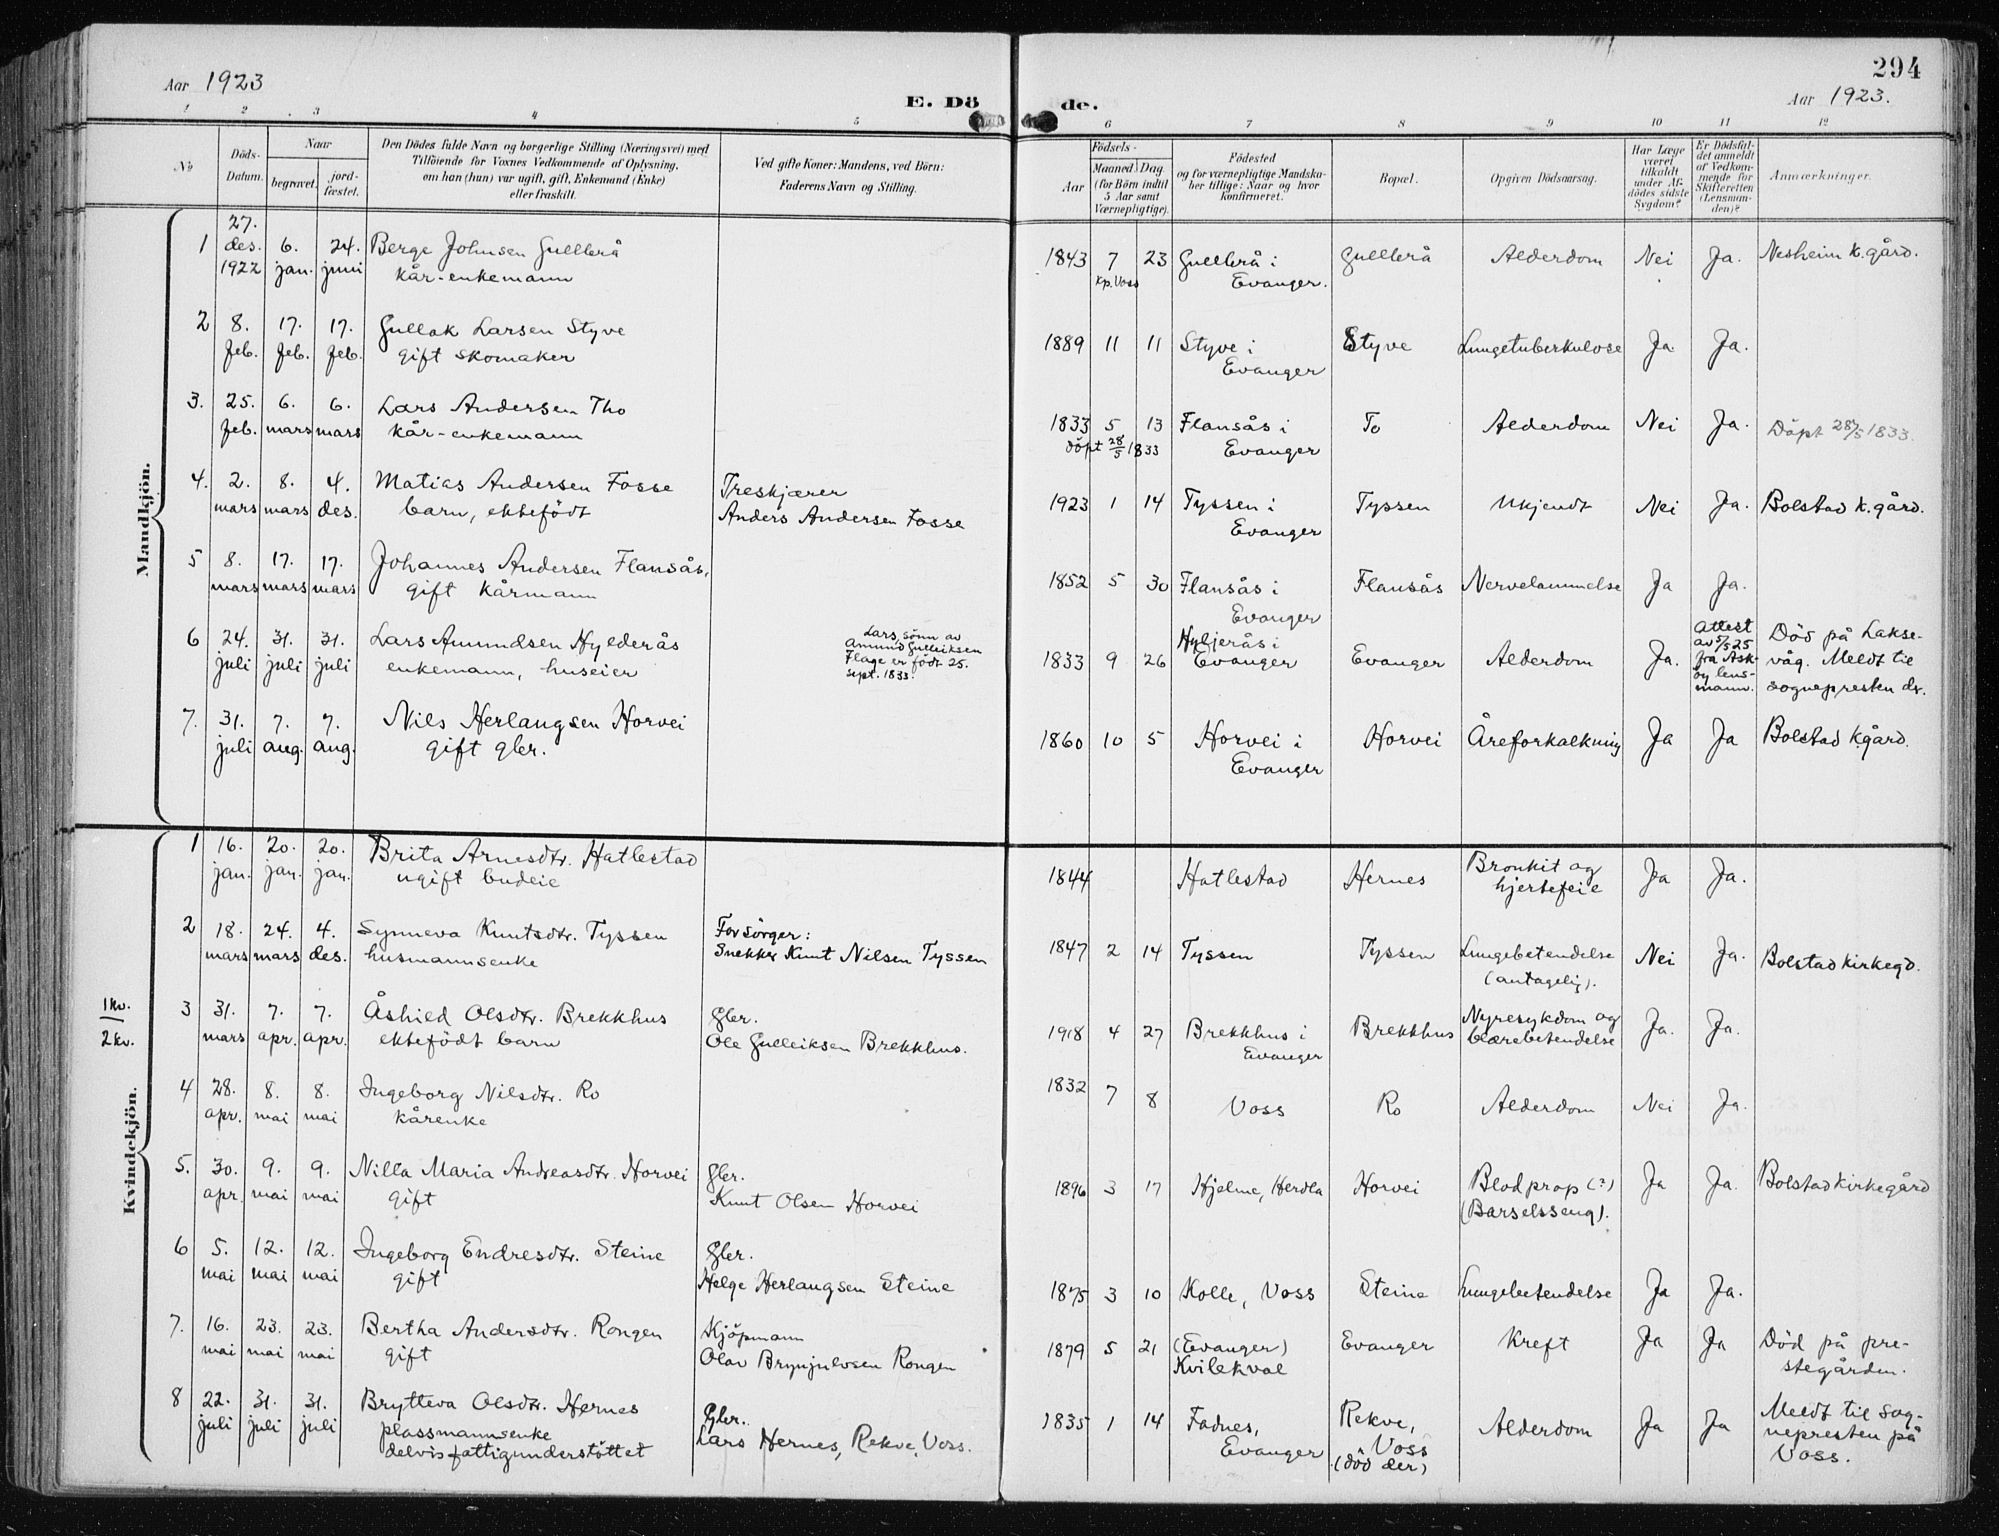 294
Aar 1923
E. Dö de.
Aar 1923.
1 2 3 4 5 6 7 8 9 10 11 12
No
Döds-
Datum.
Naar
begravet.
jord-
fæstet.
Den Dödes fulde Navn og borgerlige Stilling (Næringsvei) med
Tilföiende for Voxnes Vedkommende af Oplysning,
om han (hun) var ugift, gift, Enkemand (Enke)
eller fraskilt.
Ved gifte Koner: Mandens, ved Börn:
Faderens Navn og Stilling.
Födsels-
Aar
Maaned Dag
(for Börn indtil
5 Aar samt
Værnepligtige).
Födested
og for værnepligtige Mandska-
ber tillige: Naar og hvor
konfirmeret.
Bopæl.
Opgiven Dödsaarsag.
Har Læge
været
tilkaldt
under Af-
dödes sidste
Sygdom?
Er Dödsfal-
det anmeldt
af Vedkom-
mende for
Skifteretten
(Lensman-
den)?
Anmærkninger.
Mandkjön.
1 27. des. 1922 6. jan. 24. juni Berge Johnsen Gullbrå
kår-enkemann
1843 7 23 Gullbrå i Evanger. Gullbrå Alderdom Nei Ja. Nesheim k.gård.
kp. Voss
2 8. feb. 17. feb. 17. feb. Gullak Larsen Styve
gift skomaker
1889 11 11 Styve i Evanger Styve Lungetuberkulose Ja Ja.
3. 25. feb. 6. mars 6. mars Lars Andersen Tho
kår-enkemann
1833 5 13 Flansås i Evanger To Alderdom Nei Ja. Döpt 28/5 1833.
döpt 28/5 1833
4. 2. mars 8. mars 4. des. Matias Andersen Fosse
barn, ektefödt
Treskjærer
Anders Andersen Fosse
1923 1 14 Tyssen i Evanger Tyssen Ukjendt Nei Ja. Bolstad k.gård.
5 8. mars 17. mars 17. mars Johannes Andersen Flansås,
gift kårmann
1852 5 30 Flansås i Evanger Flansås Nervelammelse Ja Ja.
6 24. juli 31. juli 31. juli Lars Amundsen Hylderås
enkemann, huseier
Lars, sönn av
Amund Gulleiksen
Flage er födt 25.
sept. 1833.
1833 9 26 Hyljerås i Evanger Evanger Alderdom Ja.
Attest
av 5/5 25
fra Ask-
öy lens-
mann.
Död på Lakse-
våg. Meldt til
sognepresten der.
7. 31. juli 7. aug. 7. aug. Nils Herlangsen Horvei
gift gbr.
1860 10 5 Horvei i Evanger Horvei Åreforkalkning Ja Ja Bolstad kgård.
Kvindekjön.
1 kv.
2 kv.
1 16. jan. 20. jan. 20. jan. Brita Arnesdtr. Hatlestad
ugift budeie
1844 Hatlestad Hernes Bronkit og hjertefeil Ja Ja.
2 18. mars 24. mars 4. des. Synneva Knutsdtr. Tyssen
husmannsenke
Forsörger:
Snekker Knut Nilsen Tyssen
1847 2 14 Tyssen Tyssen Lungebetendelse (antagelig). Nei Ja. Bolstad kirkegd.
3 31. mars 7. apr. 7. apr. Åshild Olsdtr. Brekkhus
ektefödt barn
Gbr.
Ole Gulleiksen Brekkhus.
1918 4 27 Brekkhus i Evanger Brekkhus Nyresykdom og blærebetendelse Ja. Ja.
4 28. apr. 8. mai 8. mai Ingeborg Nilsdtr. Ro
kårenke
1832 7 8 Voss Ro Alderdom Nei Ja.
5. 30. apr. 9. mai 9. mai Nilla Maria Andreasdtr. Horvei
gift
Gbr.
Knut Olsen Horvei
1896 3 17 Hjelme, Herdla Horvei Blodprop (?) (Barselsseng). Ja Ja. Bolstad kirkegård
6 5. mai 12. mai 12. mai Ingeborg Endresdtr. Steine
gift
Gbr.
Helge Herlangsen Steine
1875 3 10 Kolle, Voss Steine Lungebetendelse Ja Ja.
7. 16. mai 23. mai 23. mai Bertha Andersdtr. Rongen
gift
Kjöpmann
Olav Brynjulvsen Rongen
1879 5 21 (Evanger) Kvilekval Evanger Kreft Ja Ja Död på pre-
stegården.
8 22. juli 31. juli 31. juli Brytteva Olsdtr. Hernes
plassmannsenke
delvis fattigunderstöttet
Gbr.
Lars Hernes, Rekve, Voss.
1835 1 14 Fadnes, Evanger Rekve, Voss (död der) Alderdom Ja Ja Meldt til sog-
nepresten på
Voss.